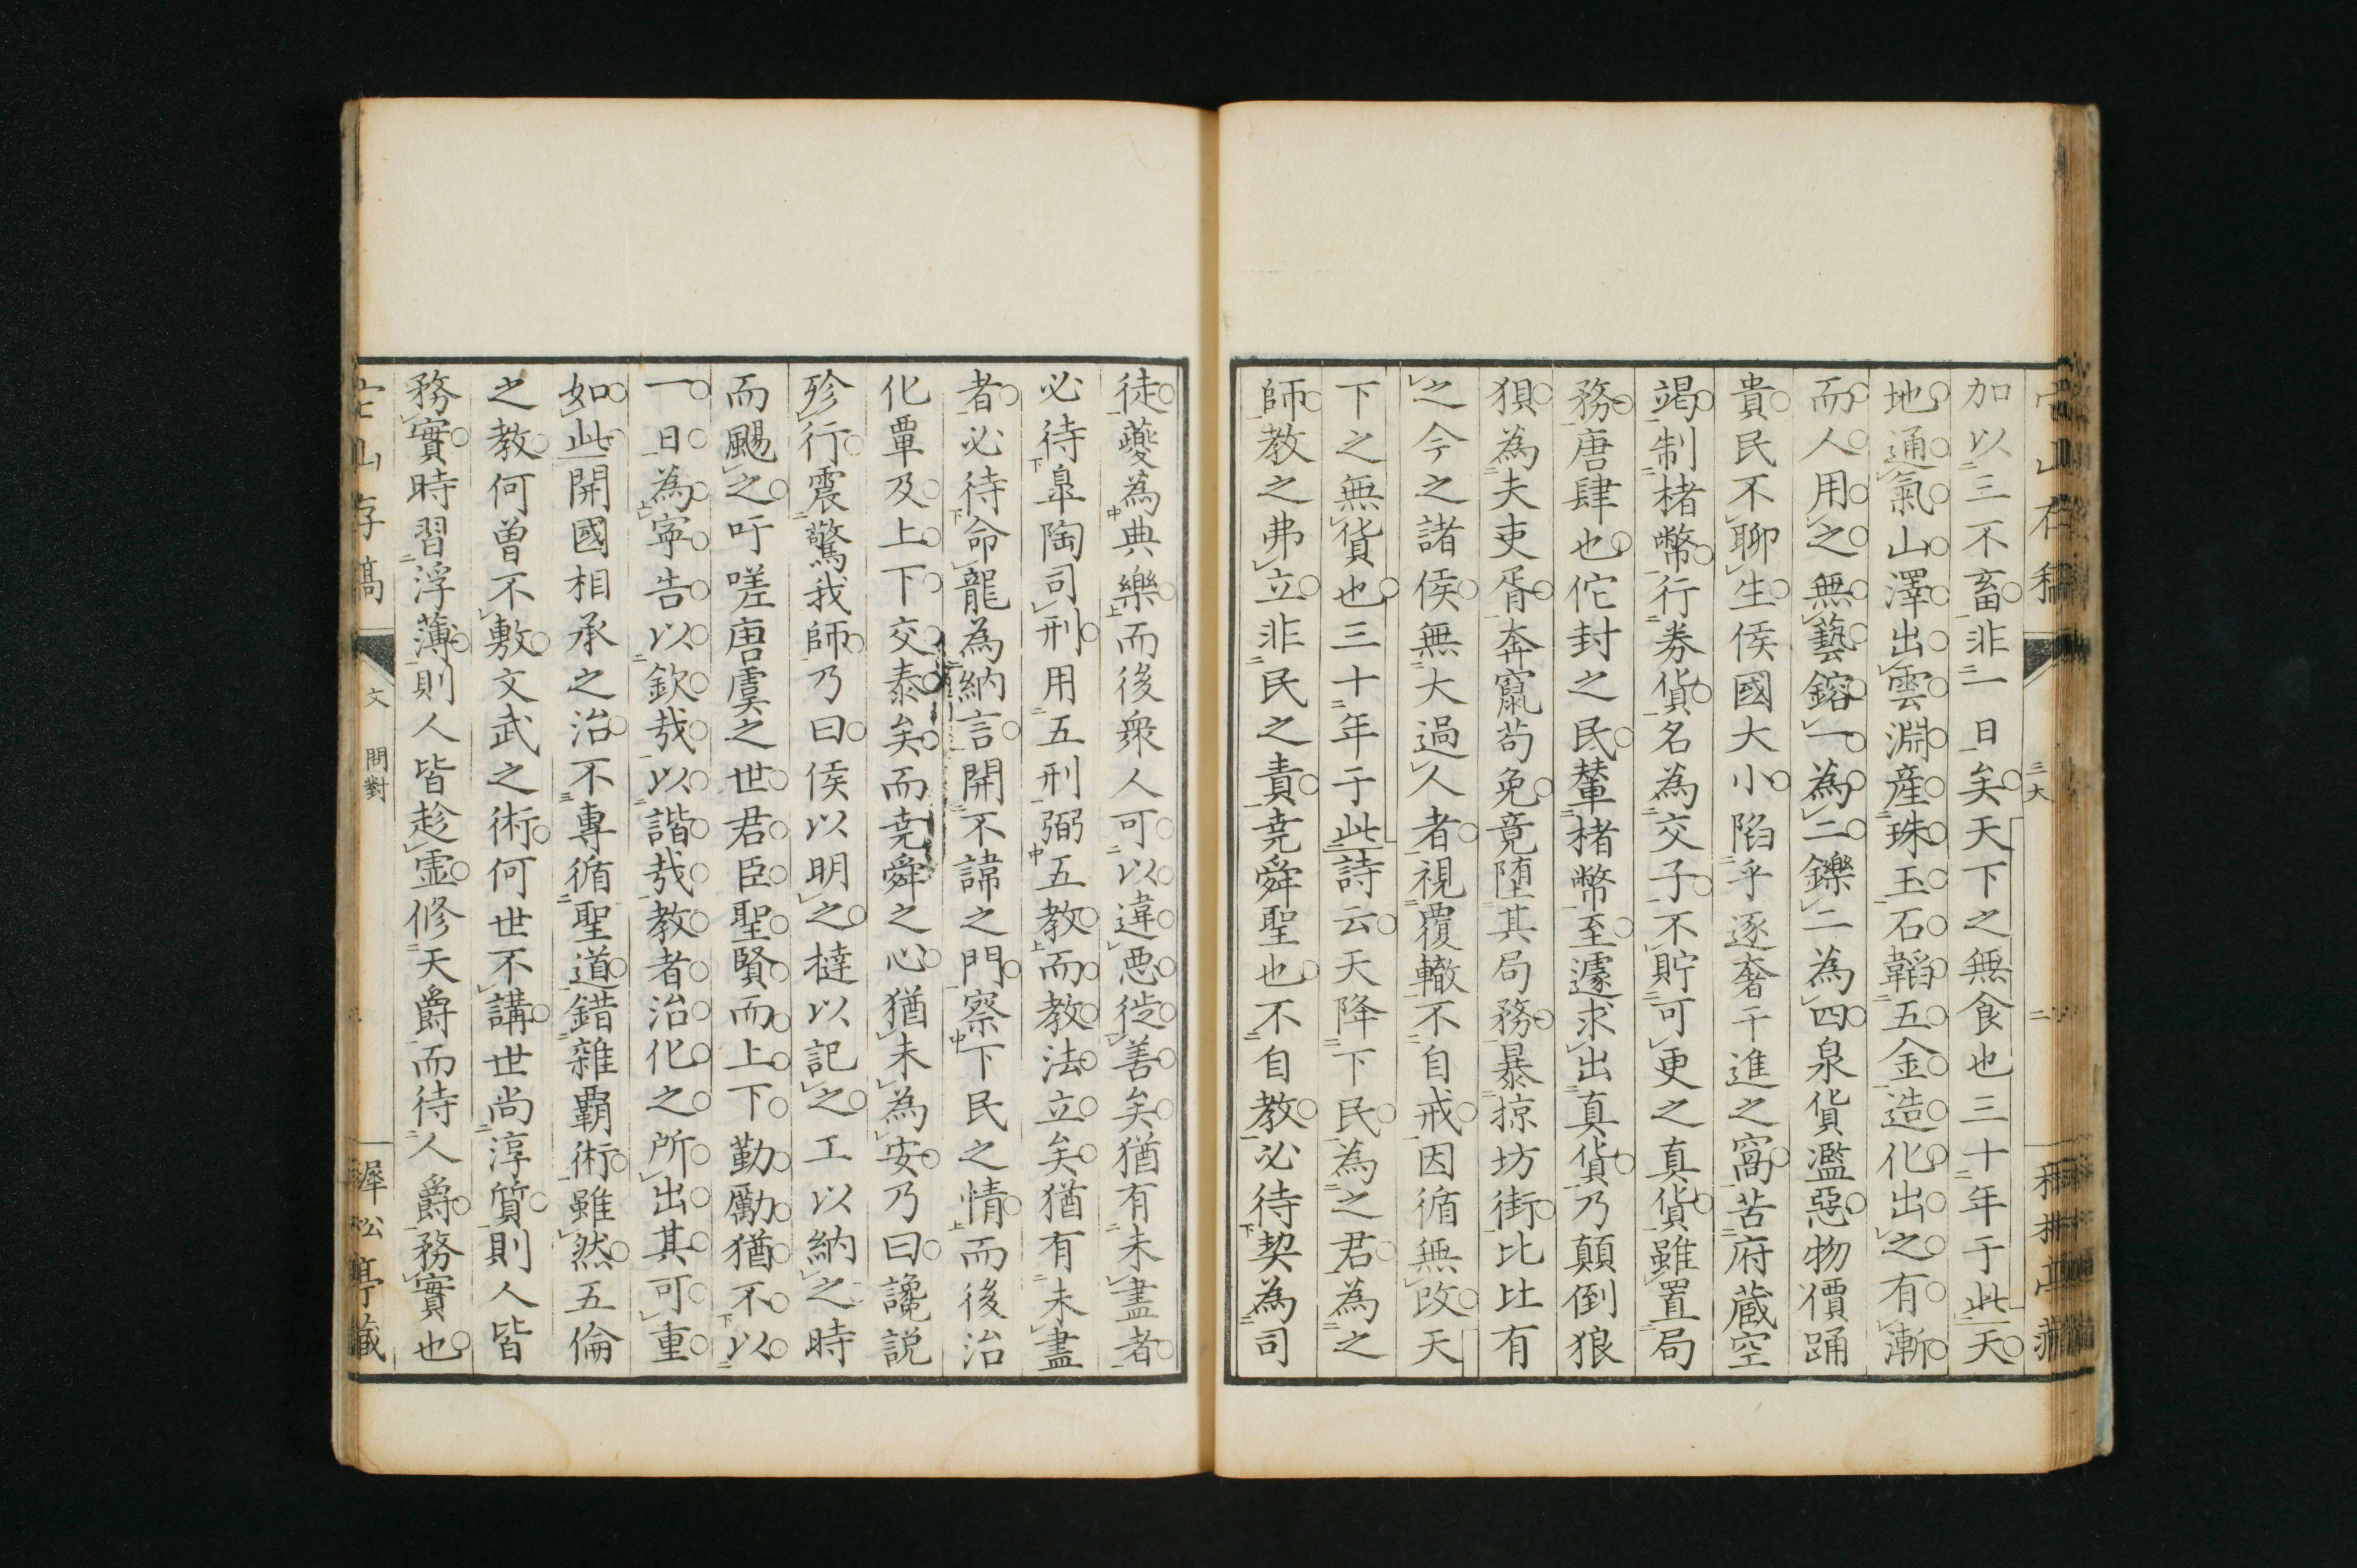 加以三不畜非一日矣天下之無食也三十年于此天
地通氣山澤出雲淵産珠玉石韜五金造化出之有漸
而人用之無藝鎔一為二鑠二為四泉貨濫惡物價踊
貴民不聊生侯國大小陷乎逐奢干進之窩苦府蔵空
竭制楮幣行券貨名為交子不貯可更之真貨雖置局
務唐肆也佗封之民輦楮幣至遽求出真貨乃顛倒狼
狽為夫吏胥奔竄苟免竟堕其局務暴掠坊街比比有
之今之諸侯無大過人者視覆轍不自戒因循無改天
下之無貨也三十年于此詩云天降下民為之君為之
師教之弗立非民之責尭舜聖也不自教必待契為司
徒夔為典樂而後衆人可以違悪徙善矣猶有未盡者
必待皐陶司刑用五刑弼五教而教法立矣猶有未盡
者必待命龍為納言開不諱之門察下民之情而後治
化覃及上下交泰矣而尭舜之心猶未為安乃曰讒説
殄行震驚我師乃曰侯以明之撻以記之工以納之時
而颺之吁嗟唐虞之世君臣聖賢而上下勤勵猶不以
一日為寧告以欽哉以諧哉教者治化之所出其可重
如此開國相承之治不專循聖道錯雜覇術雖然五倫
之教何曽不敷文武之術何世不講世尚淳質則人皆
務實時習浮薄則人皆趁虚修天爵而待人爵務實也
山存稿
文 問對
犀松亭藏